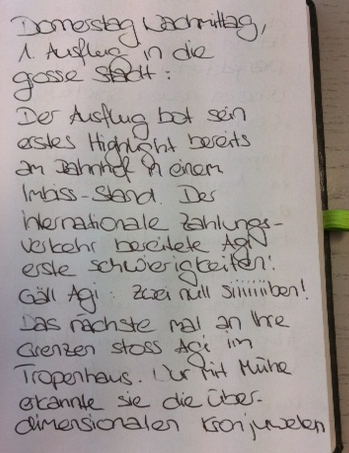 Donnerstag Nachmittag,
1. Ausflug in die
grosse Stadt:
Der Ausflug bot sein
erstes Highlight bereits
am Bahnhof in einem
Imbiss-Stand. Der
internationale Zahlungs-
verkehr bereitete Agi
erste Schwierigkeiten!
Gäll Agi: Zwei null Siiiiiiben!
Das nächste mal an Ihre
Grenzen stoss Agi im
Tropenhaus. Nur mit Mühe
erkannte sie die über-
dimensionalen Kronjuwelen